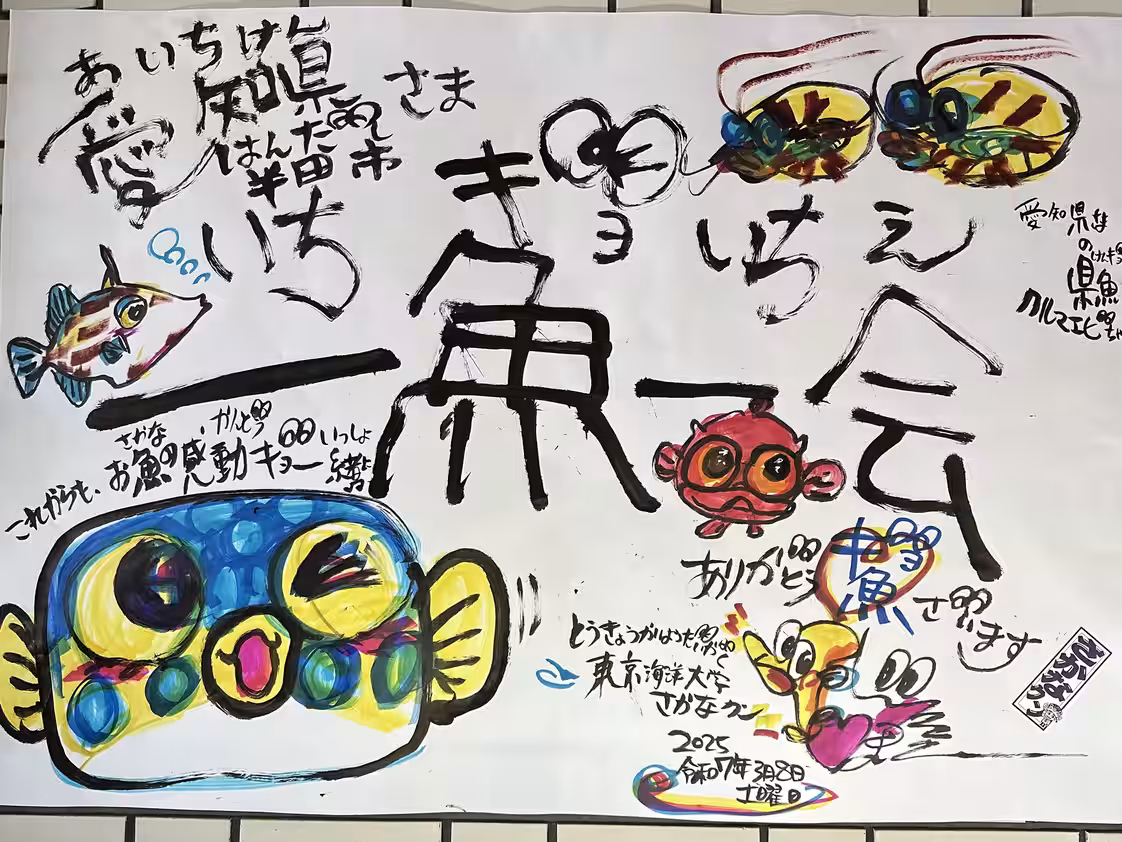 あいちけん
愛知県
さま
はんだし
半田市
いちギョいちえ
一魚一会
愛知県
の
県魚
クルマエビ
さかな かんどう いっしょ
これからも、お魚の感動ギョー緒に
ありがとう
ございます
とうきょうかいようだいがく
東京海洋大学
さかなクン
2025
令和7年3月8日
土曜日
さかなクン